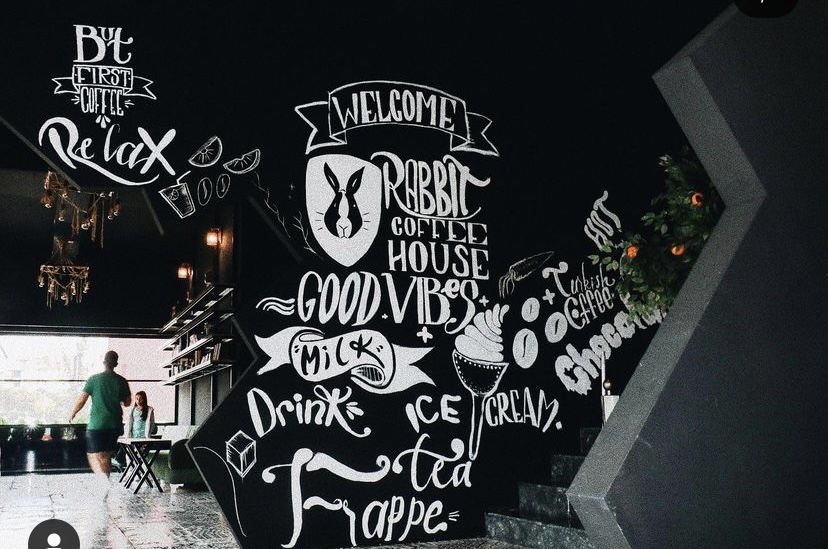 But
FIRST
COFFEE
Relax
WELCOME
RABBIT
COFFEE
HOUSE
GOOD VIBES
MILK
Drink
ICE CREAM.
tea
Frappe
HOT
Turkish
Coffee